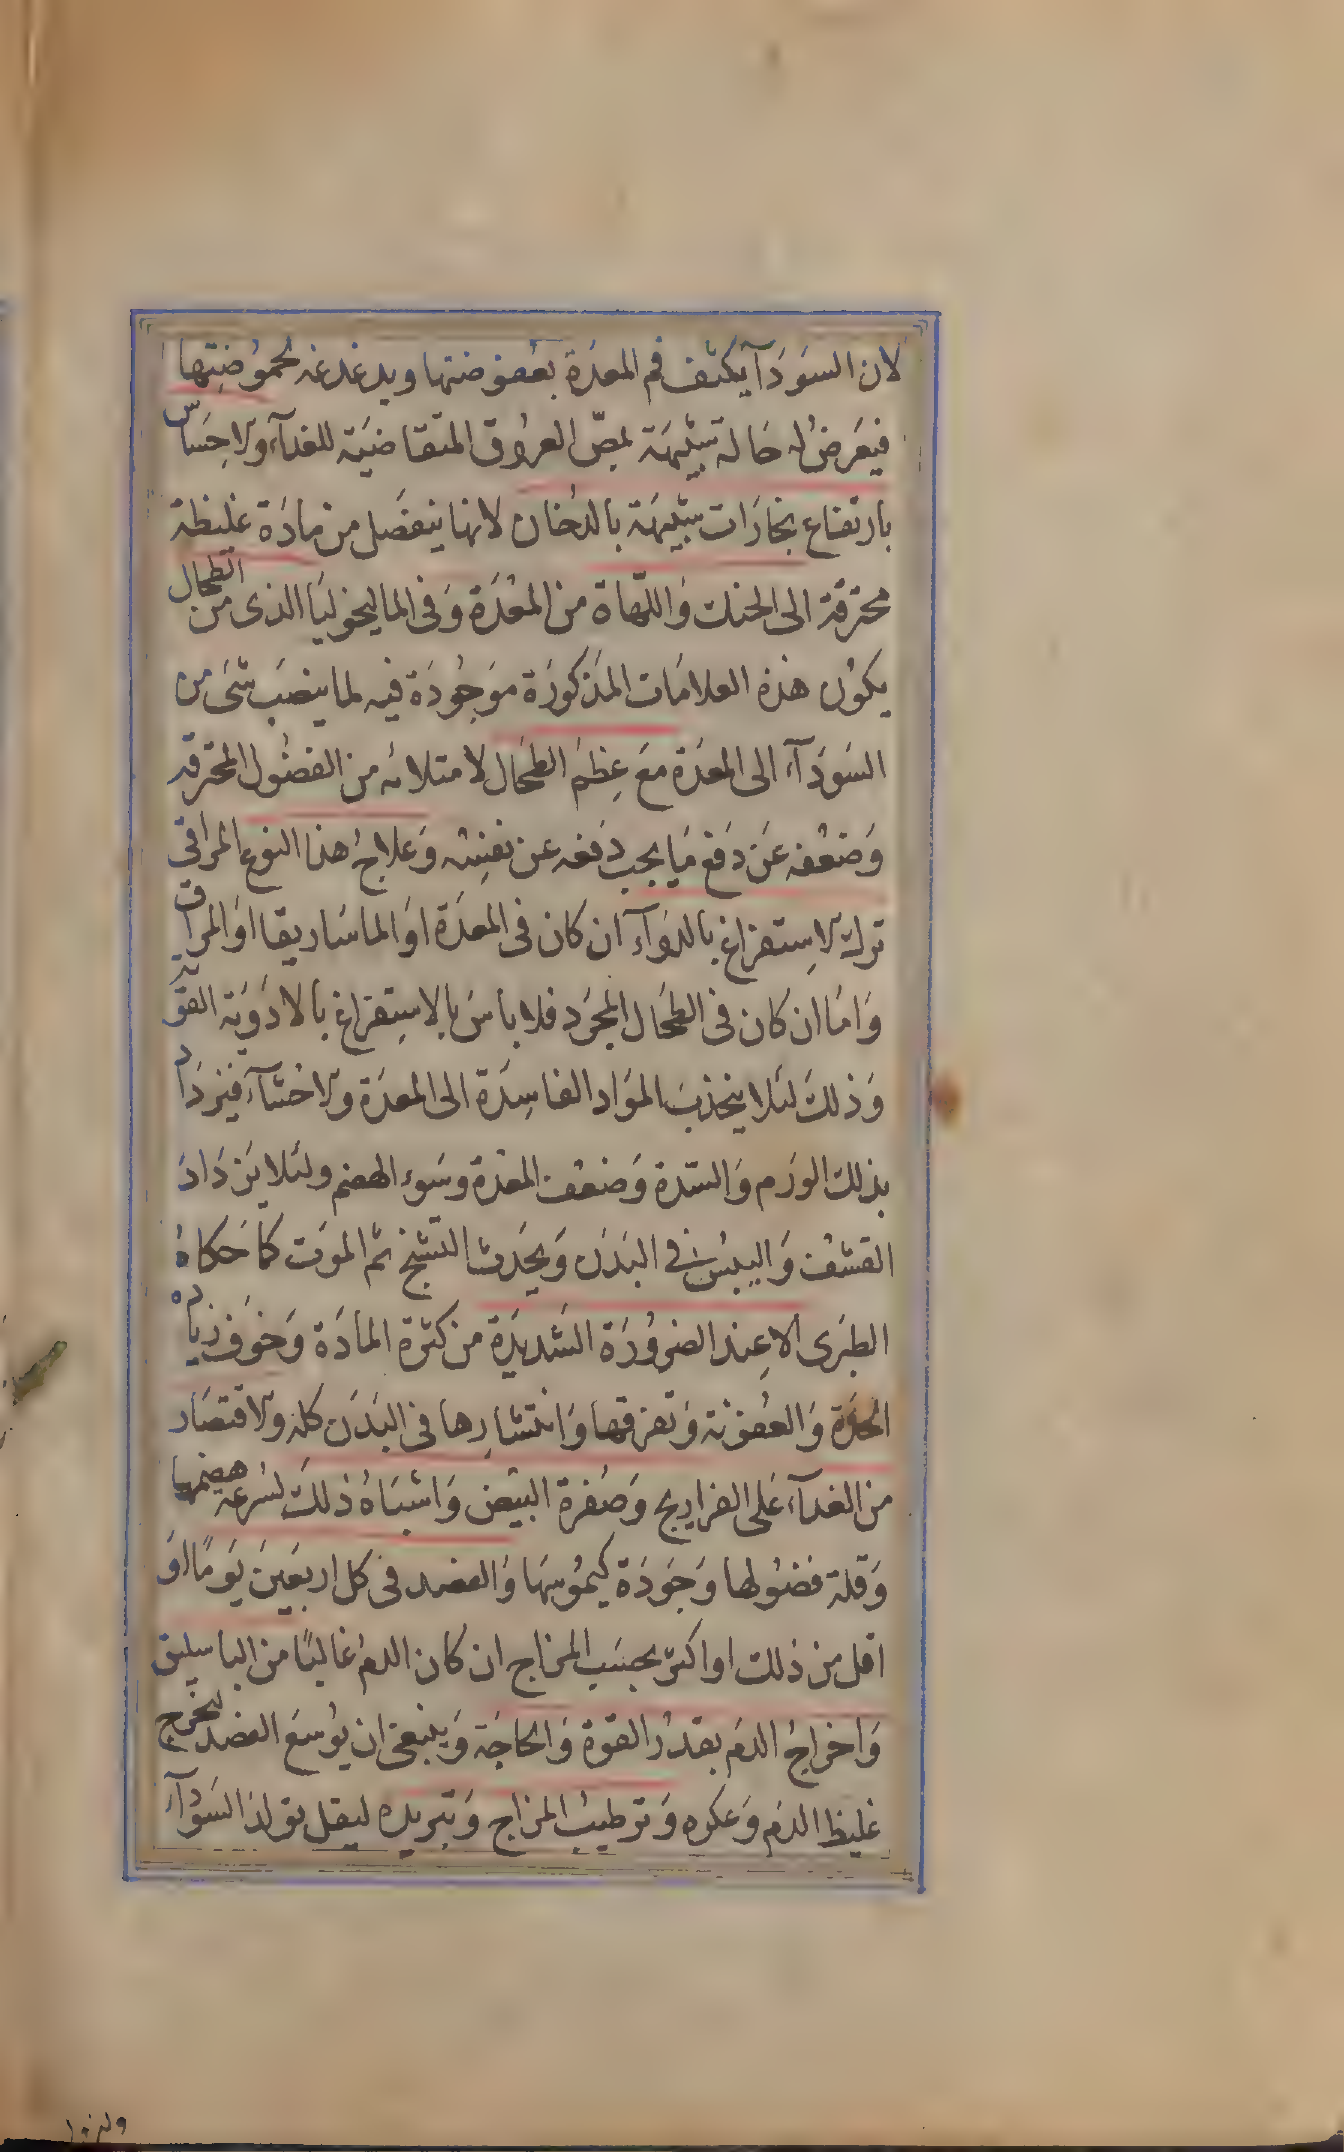 لان السَودَآ يكثف فم المعدَة بعفوضتها ويدغدغه بحموُضتِها
فيعَرضُ له حَالة شبيهَة بمصّ العروُق المتقاضيَة للغدآء والاحِسَاس
بارتفاع بخارَات شبيهَة بالدُخان لانها ينفصَل من مادَة غليظة
محترقة الى الحنك وَاللّهاة من المعْدَة وَفى الماليخوليَا الذى من الطحال
يكوُن هذه العلامَات المذكورَة موَجوُدَة فيه لما ينصَب شَى من
السَودَآء الى المعدَة معَ عِظمَ الطحَال لامتلائه من الفضوُل المحترقه
وَضعْفه عَن دَفع مَا يجب دَفعه عن نفسِه وَعلاجُ هذا النوع المراقى
ترك الاِستفراغ بالدوَآء ان كان فى المعدَة اوَ الماسَاريقا اوَ المراق
وَامَا ان كَان فى الطحَال المجرَد فلا باسَ بالاستِفراغ بالادَويَة القوَية
وَذلكَ لئَلا ينجذبَ الموَاد الفاسِدَة الى المعدَة والاحشآء فيزدَاد
بذلك الورَم وَالسّدة وَضعْف المعْدَة وسَوء الهضم ولئَلا يَزدَادَ
القشَف وَاليبسُ فى البَدَن وَيحَدث التشنج ثم الموَت كمَا حَكاهُ
الطبَرى الا عِند الضروُرَة الشَديدَة من كثرَة المادَة وَخوَف زيَادَه
الحدَة وَالعفوُنة وَتفرقها وَانتشارِها فى البَدَن كله والاقتصَار
من الغدآء عَلى الفراريج وَصُفرة البيَض وَاشبَاهُ ذلكَ لسُرعَة هضمها
وَقلة فضوُلها وَجوَدَة كيموُسهَا وَالفصد فى كل اربَعينَ يَومًا اوَ
اقل من ذلك او اكثر بحسَب المزاج ان كان الدمُ غالبًا من الباسليق
وَاخراجُ الدمَ بقدرُ القوة وَالحاجَة وَينبغى ان يوُسعَ الفصد ليخرج
غليظ الدمَ وَعكره وَترطيبُ المزاج وَتبريده ليقل توَلدُ السَودآء